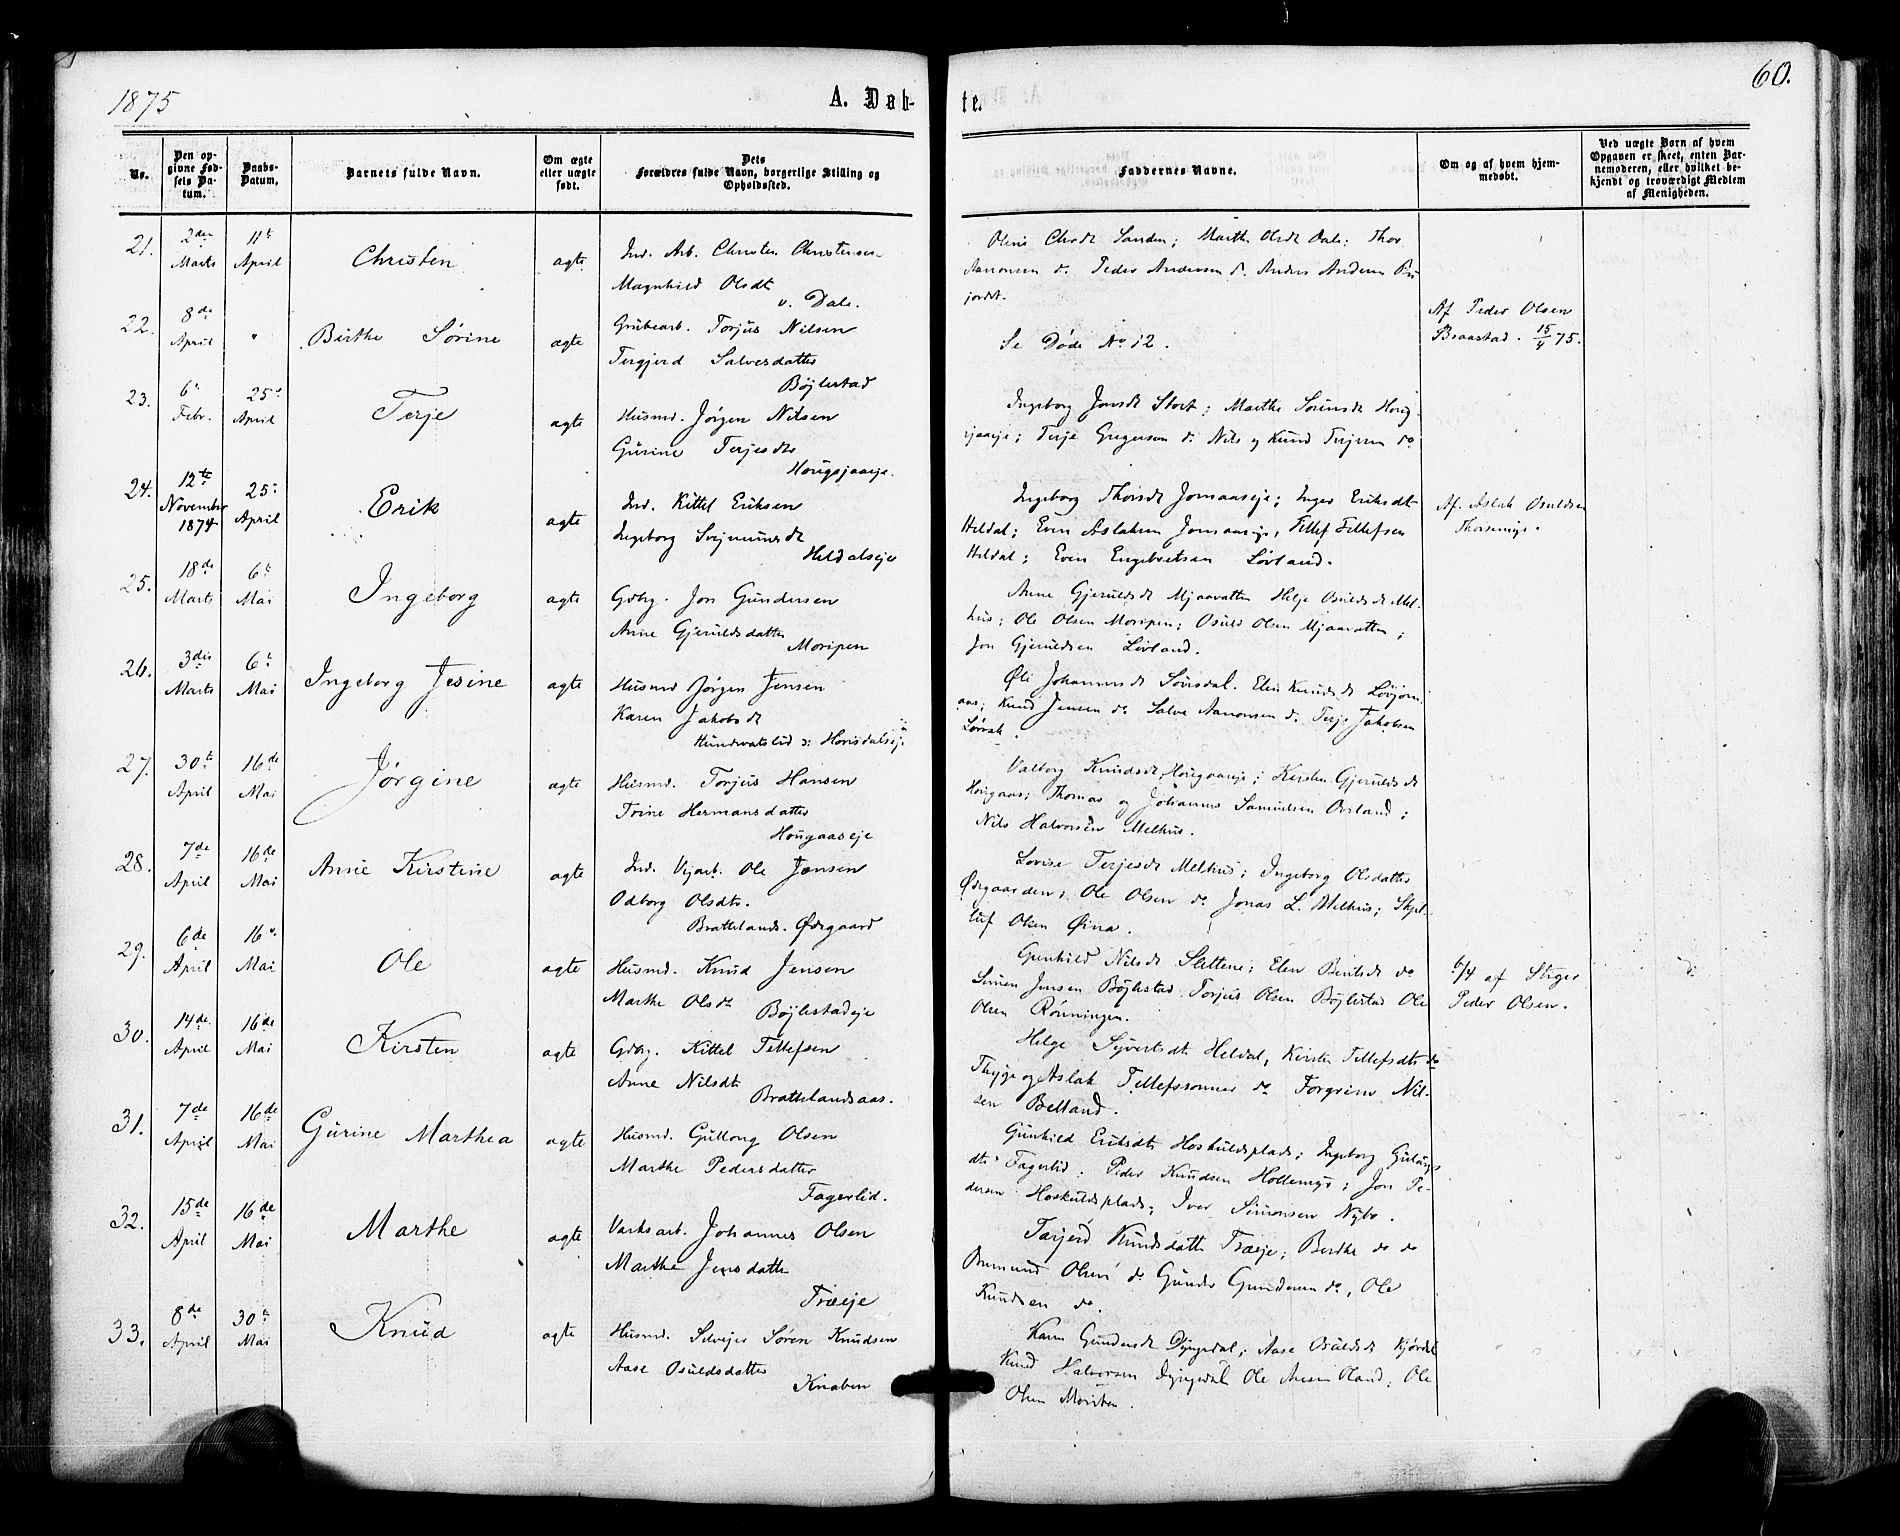 1875
A. Døb-
te.
60.
No.
Den op-
givne Fød-
sels Da-
tum.
Daabs-
Datum.
Barnets fulde Navn.
Om ægte
eller uægte
født.
Dets
Forældres fulde Navn, borgerlige Stilling og
Opholdssted.
Faddernes Navne.
Om og af hvem hjem-
medøbt.
Ved uægte Børn af hvem
Opgaven er skeet, enten Bar-
nemoderen, eller hvilket be-
kjendt og troværdigt Medlem
af Menigheden.
21. 2den Marts 11te April Christen ægte
Ind. Arb. Christen Christensen
Magnhild Olsdt
v. Dale.
Chrdt Sanden; Marthe Olsdt Dale; Thor
Aanonsen do Peder Andersen do Anders Andersen
22. 8de April " Birthe Sørine ægte
Grubearb. Torjus Nilsen
Tergjerd Salvesdatter
Bøjlestad
Se Døde No 12.
Af Peder Olsen
Braastad. 15/4 75.
23. 6te Febr. 25de April Terje ægte
Husmd. Jørgen Nilsen
Gurine Terjesdtr
Hougsjaaeje.
Ingeborg Jonsdt Stort; Marthe Sørensdt Houg-
sjaaeje; Terje Gregersen do Nils og Knud Terjesen do
24. 12te November 1874 25de April Erik ægte
Ind. Kittel Eriksen
Ingeborg
Heldalseje
Ingeborg Thorsdt Jomaaseje; Inger Eriksdt
Heldal; Even Aslaksen Jomaaseje, Tellef Tellefsen
Heldal; Even Engebretsen Løvland.
Af Aslak Osuldsen
25. 18de Marts 6te Mai Ingeborg ægte
Gdbg. Jon Gundersen
Anne Gjeruldsdatter
Moripen
Anne Gjeruldsdt Mjaavatten Helje Osuldsdt Mel-
hus; Ole Olsen Moripen; Osuld Olsen Mjaavatten;
Jon Gjeruldsen Løvland.
26. 3die Marts 6te Mai Ingeborg Jesine ægte
Husmd Jørgen Jensen
Karen Jakobsdt
Hundvatslid
Johannesdt Elen Knudsdt Løvjom-
aas; Knud Jensen do Salve Aanonsen do Terje Jakobsen
27. 30te April 16de Mai Jørgine ægte
Husmd. Torjus Hansen
Trine Hermansdatter
Hougaaseje
Valborg Knudsdt Hougaaseje; Kirsten Gjeruldsdt
Hougaas; Thomas og Johannes Samuelsen Ovrland;
Nils Halvorsen Melhus.
28. 7de April 16de Mai Anne Kirstine ægte
Ind. Vejarb. Ole Jensen
Odborg Olsdtr.
Brattelands-Ødegaard
Lovise Terjesdt Melhus; Ingeborg Olsdatter
Ødegaarden; Ole Olsen do Jonas L. Melhus;
Olsen Øina.
29. 6de April 16de Mai Ole ægte
Husmd. Knud Jensen
Marthe Olsdtr
Bøjlestadeje
Gunhild Nilsdt Slettene; Elen Bentsdt do
Simen Jensen Bøjlestad Torjus Olsen Bøjlestad Ole
Olsen Rønningen.
6/4 af Stiger
Peder Olsen.
30. 14de April 16de Mai Kirsten ægte
Gdbg. Kittel Tellefsen
Anne Nilsdt
Brattelandsaas.
Helge Syvertsdt Heldal, Kirsten Tellefsdtr do
Thygje og Aslak Tellefssønner do Torgrim Nil-
sen Belland.
31. 7de April 16de Mai Gurine Marthea ægte
Husmd. Gullong Olsen
Marthe Pedersdatter
Fagerlid.
Gunhild Eriksdtr Hoskuldsplads; Ingeborg
dtr Fagerlid; Peder Knudsen Hollemyr; Jon Pe-
dersen Hoskuldsplads; Iver Simonsen Nybo.
32. 15de April 16de Mai Marthe ægte
Værksarb. Johannes Olsen
Marthe Jensdatter
Træeje
Tarjerd Knudsdatter Træeje; Berthe do do
Olsen do Gunder Gundersen do, Ole
Knudsen do.
33. 8de April 30te Mai Knud ægte
Husmd. Selvejer Søren Knudsen
Aase Osuldsdatter
Knaben
Karen Gundersdt Dyngedal; Aase Osuldsdt
Knud Halvorsen Dyngedal Ole Olsen